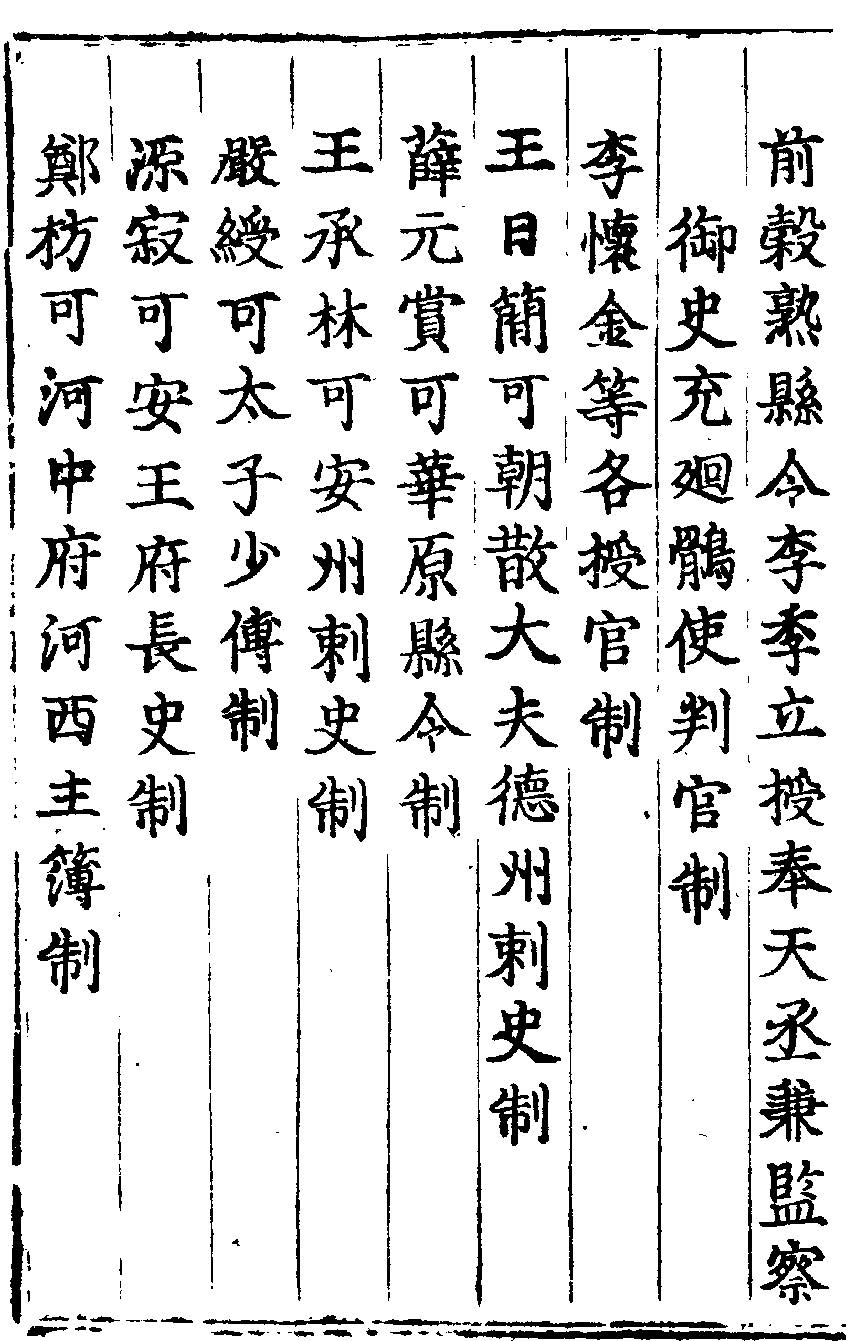 前穀熟縣令李季立授奉天丞兼監察
御史充廻鶻使判官制
李懷金等各授官制
王日簡可朝散大夫德州刺史制
薛元賞可華原縣令制
王承林可安州刺史制
嚴綬可太子少傅制
源寂可安王府長史制
鄭枋可河中府河西主簿制